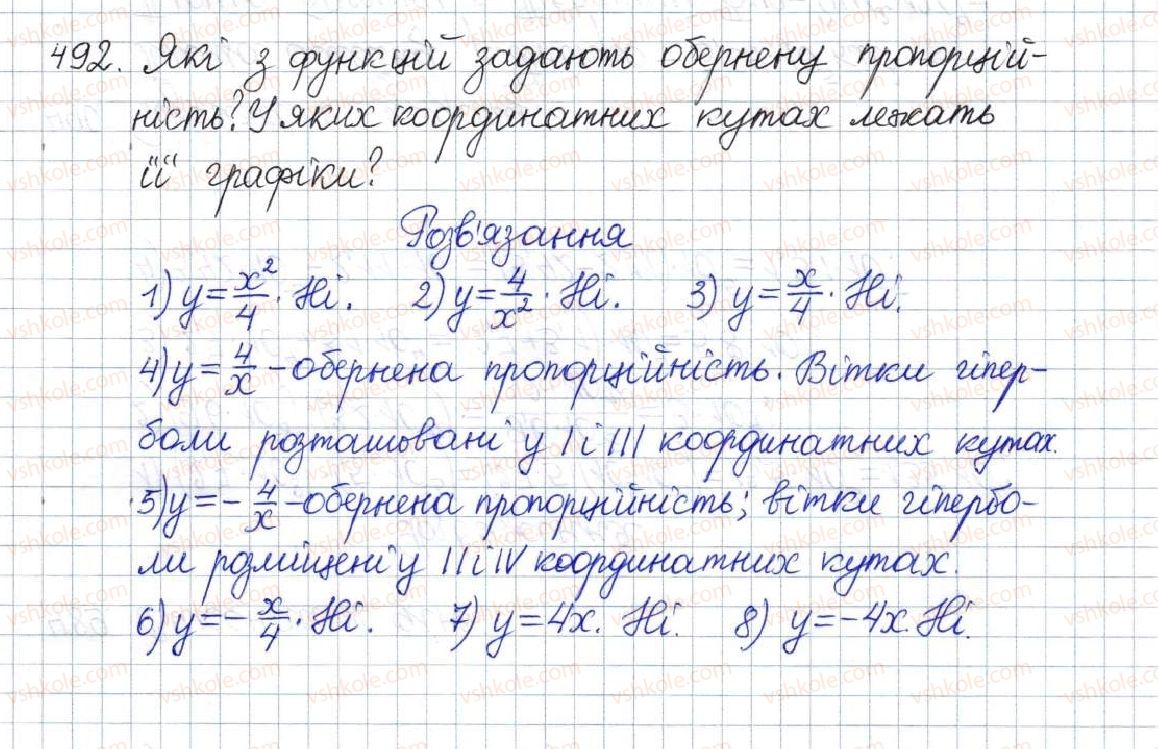 492. Які з функцій задають обернену пропорцій-
ність? У яких координатних кутах лежать
її графіки?
Розв'язання
1) y = x²/4. Ні. 2) y = 4/x². Ні. 3) y = x/4. Ні.
4) y = 4/x - обернена пропорційність. Вітки гіпер-
боли розташовані у І і ІІІ координатних кутах.
5) y = -4/x - обернена пропорційність; вітки гіпербо-
ли розміщені у ІІ і IV координатних кутах.
6) y = -x/4. Ні. 7) y = 4x. Ні. 8) y = -4x. Ні.
vshkole.com